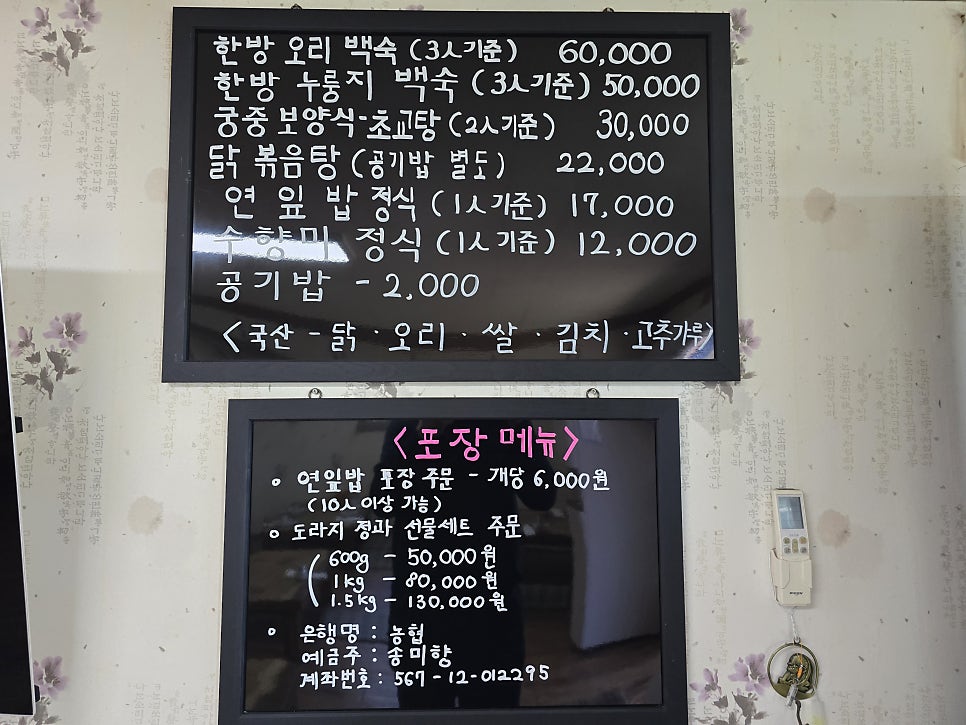 한방 오리 백숙 (3人기준) 60,000
한방 누룽지 백숙 (3人기준) 50,000
궁중 보양식-초교탕 (2人기준) 30,000
닭 볶음탕 (공기밥 별도) 22,000
연 잎 밥 정식 (1人기준) 17,000
수향미 정식 (1人기준) 12,000
공기밥 - 2,000
<국산 - 닭 · 오리 · 쌀 · 김치 · 고추가루>
<포장 메뉴>
◦ 연잎밥 포장 주문 - 개당 6,000원
(10人 이상 가능)
◦ 도라지 정과 선물세트 주문
600g - 50,000원
1kg - 80,000원
1.5kg - 130,000원
◦ 은행명 : 농협
예금주 : 송미향
계좌번호 : 567-12-012295